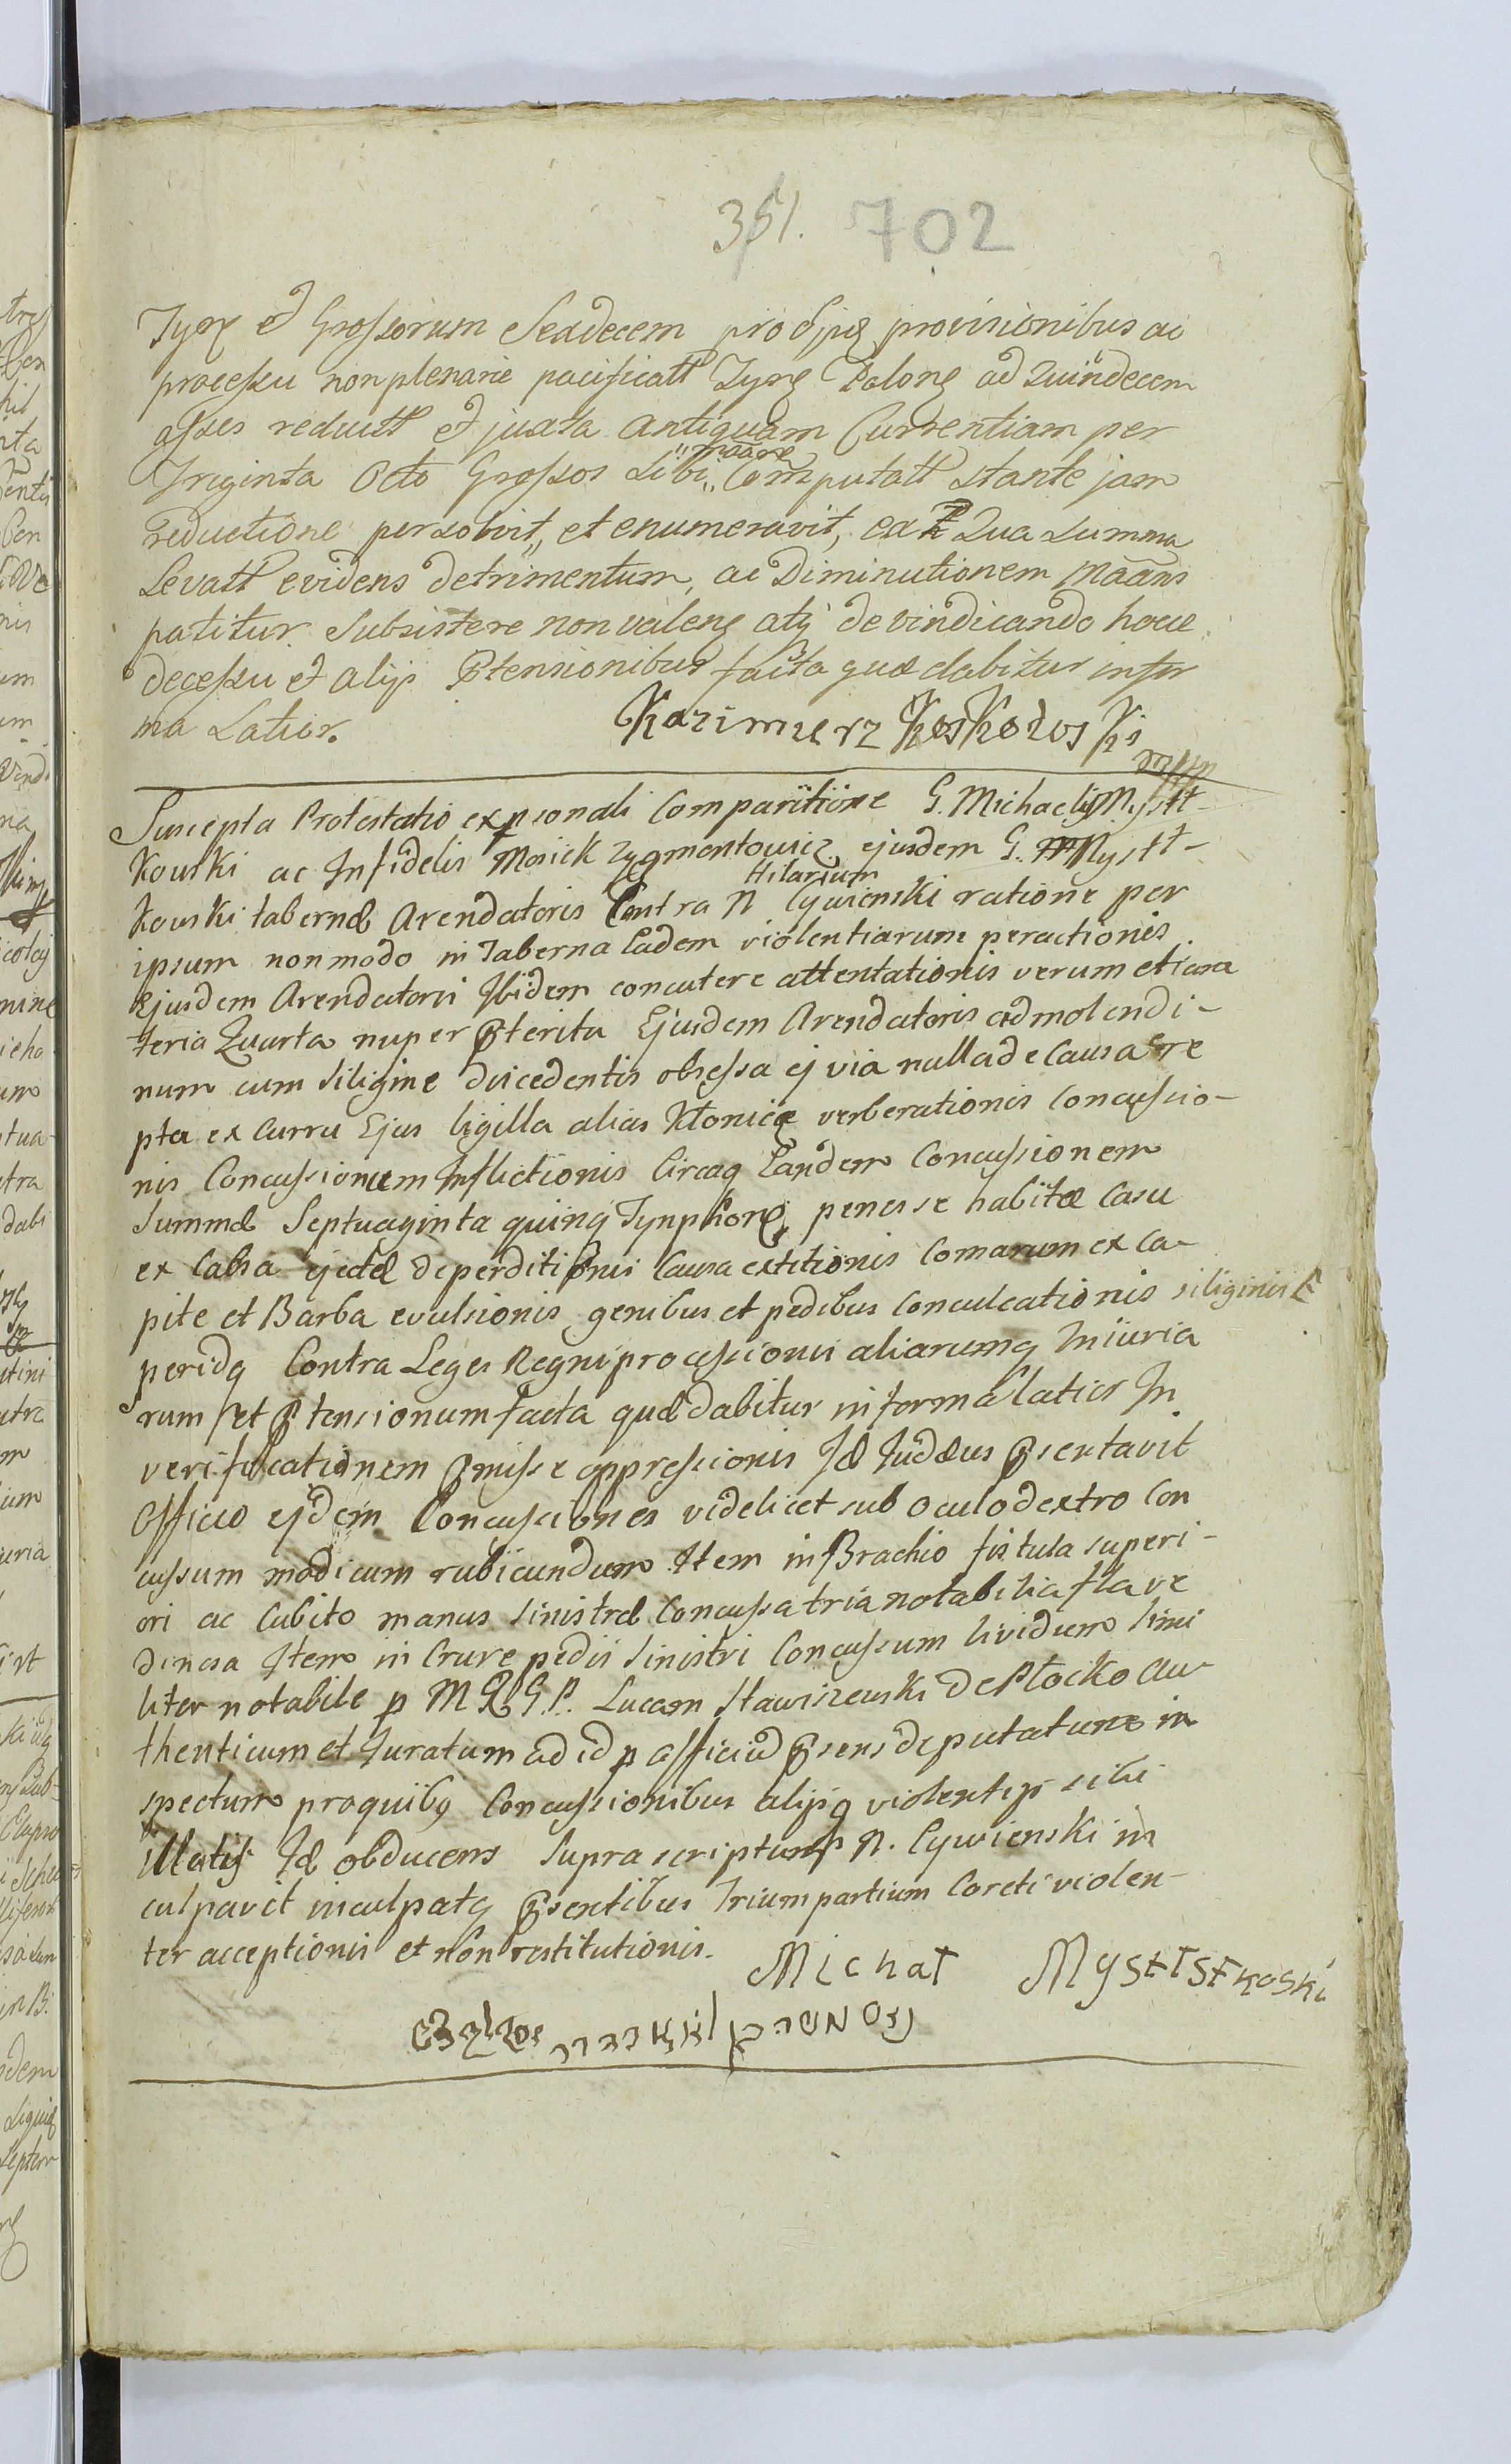 351. 702
Tynf et Grossorum Sexdecem pro ejus provisionibus ac
processu non plenarie pacificatt Tynf Polonf ad Quindecem
asses reductt et juxta antiquam Currentiam per
Triginta Octo Grossos sibi „maāre„ Computatt stante jam
reductione persolvit„ et enumeravit, ex Qua summa
Levatt evidens detrimentum, ac Diminutionem maāns
patitur Subsistere non valens atq de vindicando hocce
decessu et alijs Ptensionibus facta quæ dabitur in for
ma Latior.
Kazimierz Koskodoski
Suscepta Protestatio ex psonali Comparitione G. Michaelis Mystt-
kouski ac Infidelis Mosiek Zygmontowicz ejusdem G. Mystt-
kouski tabernæ Arendatoris Contra N Hilarium Cywienski ratione per
ipsum non modo in Taberna Eadem violentiarum peractionis
Ejusdem Arendatorii Ibidem concutere attentationis verum etiam
feria Quarta nuper pterita Ejusdem Arendatoris ad molendi-
num cum siligine discedentis obsessa ej via nulla de Causa arre
pta ex Curru Ejus ligilla alias Kłonicæ verberationis Concussio-
nis Concussionum Inflictionis Circaq Eandem Concussionem
Summæ Septuaginta quinq Tynphorū penes se habitæ Casu
ex Calsa ejectæ deperditionis Causa extitionis Comarum ex Ca-
pite et Barba evulsionis genibus et pedibus Conculcationis siliginis E
peridq Contra Leges Regni processionis aliarumq Iniuria
rum et Ptensionum facta quæ dabitur in forma latior In
verificationem pmissæ oppressionis Id Judæus Psentavit
Officio ejdem Concussiones videlicet sub oculo dextro Con
cussum modicum rubicundum Item in Brachio fistula superi-
ori ac Cubito manus Sinistræ Concussa tria notabilia flave
dinosa Item in Crure pedis Sinistri Concussum lividum Simi
liter notabile p M R G P. Lucam Stawiszewski De Płocko au
thenticum et Juratum ad id p officiū Psens deputatum in
spectum pro quibq Concussionibus alijsq violentijs sibi
illatis Id obducens Supra scriptum N. Cywienski in
culpavit inculpatq Psentibus Trium partium Coreti violen-
ter acceptionis et non restitutionis.
Michał Mysttstkoski